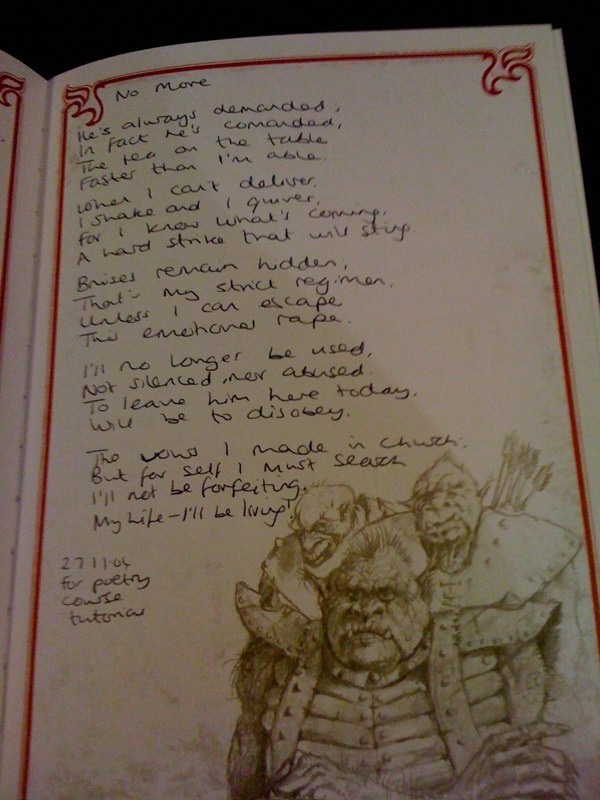 No More
He's always demanded,
In fact he's comanded,
The tea on the table
Faster than I'm able.
When I can't deliver,
I shake and I quiver,
For I know what's coming,
A hard strike that will sting.
Bruises remain hidden,
That's my strict regimen,
Unless I can escape
This emotional rape.
I'll no longer be used,
Not silenced, nor abused
To leave him here today,
Will be to disobey.
The vows I made in church.
But for self I must search
I'll not be forfeiting,
My Life - I'll be living!
27 11 04
for poetry
course
tutorial